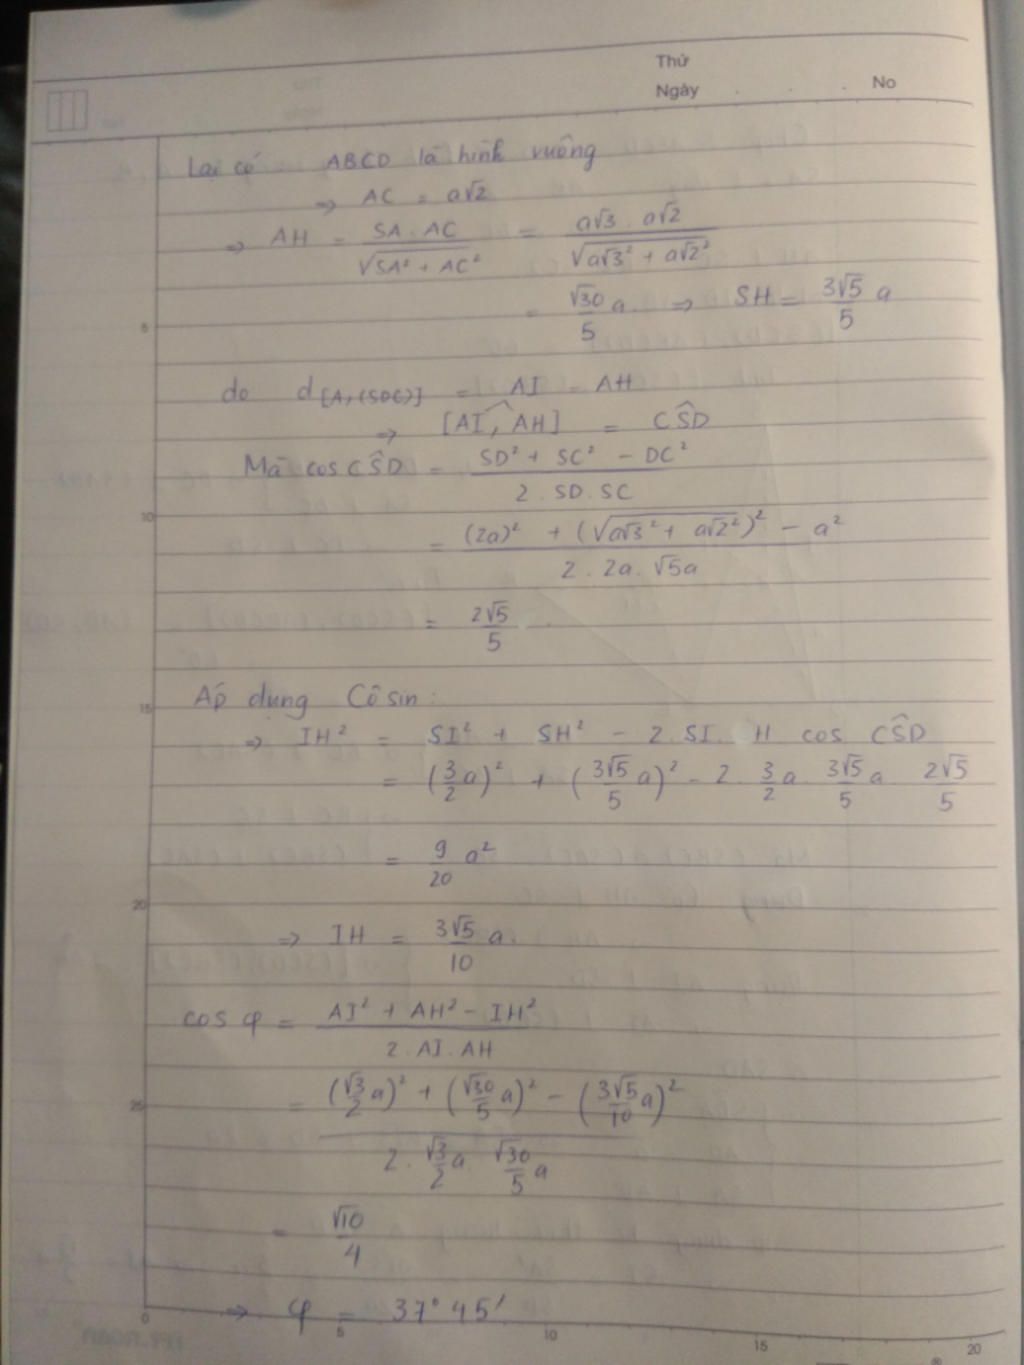 Thứ
Ngày . . . No
Lại có ABCD là hình vuông
⇒ AC = a√2
⇒ AH = SA . AC / √(SA² + AC²) = a√3 . a√2 / √(a√3² + a√2²)
= √30/5 a. ⇒ SH = 3√5/5 a
5
do d[A,(SDC)] = AI = AH
⇒ [AI, AH]^ = CŜD
Mà cos CŜD = (SD² + SC² - DC²) / (2 . SD . SC)
10
= ((2a)² + (√(a√3² + a√2²))² - a²) / (2 . 2a . √5a)
= 2√5/5 .
Áp dụng Côsin :
15
⇒ IH² = SI² + SH² - 2 . SI . H cos CŜD
= (3/2 a)² + (3√5/5 a)² - 2 . 3/2 a . 3√5/5 a 2√5/5
= 9/20 a²
20
⇒ IH = 3√5/10 a.
cos φ = (AI² + AH² - IH²) / (2 . AI . AH)
25
= ((√3/2 a)² + (√30/5 a)² - (3√5/10 a)²) / (2 . √3/2 a √30/5 a)
= √10/4
⇒ φ = 37° 45'
0 5 10 15 20